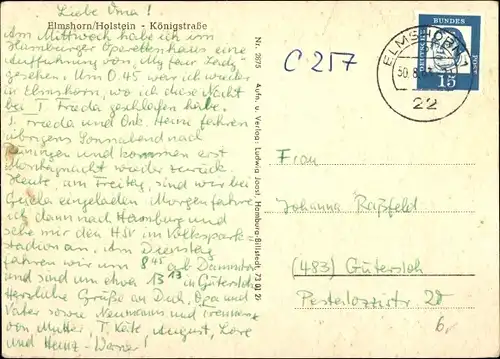 Liebe Oma!
Elmshorn/Holstein - Königstraße
Am Mittwoch habe ich im
Hamburger Operettenhaus eine
Aufführung von "My fair Lady"
gesehen. Um 0.45 war ich wieder
in Elmshorn, wo ich diese Nacht
bei T. Frieda geschlafen habe.
T. Frieda und Onk. Heine fahren
übrigens Sonnabend nach
und kommen erst
Montagnacht wieder zurück.
Heute, am Freitag, sind wir bei
Gisela eingeladen. Morgen fahre
ich dann nach Hamburg und
sehe mir den HSV im Volkspark-
stadion an. Am Dienstag
fahren wir um 8 45 ab Dammtor
und sind um etwa 13 13 in Gütersloh
Herzliche Grüße an Dich, Opa und
Vater sowie Neumanns und
von Mutter, T. Käte, August, Lore
und Heinz-Werner!
Nr. 2875 Aufn. u. Verlag: Ludwig Joost, Hamburg-Billstedt, 73 01 21
C 257
ELMSHORN 1
30.8.
22
DEUTSCHE
BUNDES
POST
15
Frau
Johanna Raßfeld
(483) Gütersloh
Pestalozzistr. 20
6,-